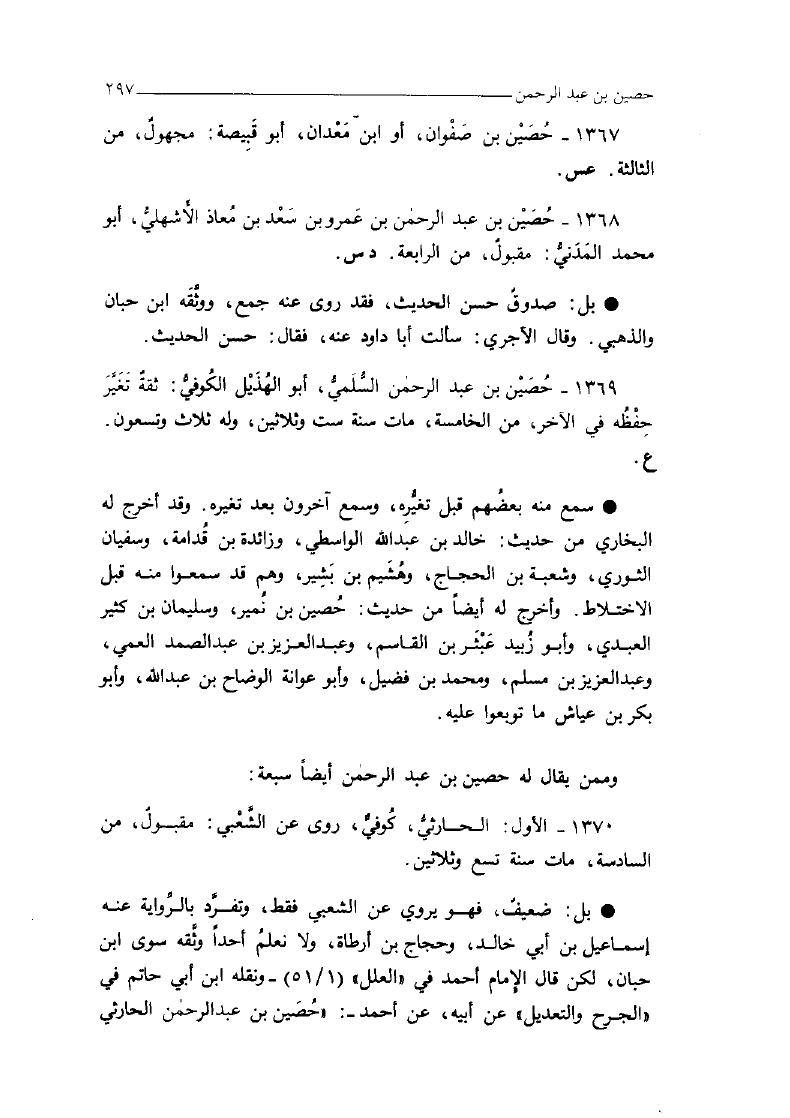 حصين بن عبد الرحمن ٢٩٧
١٣٦٧ ـ حُصَيْن بن صَفْوان، أو ابن مَعْدان، أبو قَبِيصة: مجهولٌ، من
الثالثة. عس.
١٣٦٨ ـ حُصَيْن بن عبد الرحمٰن بن عَمرو بن سَعْد بن مُعاذ الأَشهليُّ، أبو
محمد المَدَنيُّ: مقبولٌ، من الرابعة. د س.
● بل: صدوقٌ حسن الحديث، فقد روى عنه جمع، ووثَّقَه ابن حبان
والذهبي. وقال الآجري: سألت أبا داود عنه، فقال: حسن الحديث.
١٣٦٩ ـ حُصَيْن بن عبد الرحمٰن السُّلَميُّ، أبو الهُذَيْل الكُوفيُّ: ثقةٌ تَغَيَّرَ
حِفْظُه في الآخر، من الخامسة، مات سنة ست وثلاثين، وله ثلاث وتسعون.
ع.
● سمع منه بعضُهم قبل تغيُّرِه، وسمع آخرون بعد تغيره. وقد أخرج له
البخاري من حديث: خالد بن عبدالله الواسطي، وزائدة بن قُدامة، وسفيان
الثوري، وشعبة بن الحجاج، وهُشَيم بن بَشِير، وهم قد سمعوا منه قبل
الاختلاط. وأخرج له أيضاً من حديث: حُصين بن نُمير، وسليمان بن كثير
العبدي، وأبو زُبيد عَبْثَر بن القاسم، وعبدالعزيز بن عبدالصمد العمي،
وعبدالعزيز بن مسلم، ومحمد بن فضيل، وأبو عوانة الوضاح بن عبدالله، وأبو
بكر بن عياش ما توبعوا عليه.
وممن يقال له حصين بن عبد الرحمٰن أيضاً سبعة:
١٣٧٠ ـ الأول: الحارثيُّ، كُوفيٌّ، روى عن الشَّعْبي: مقبولٌ، من
السادسة، مات سنة تسع وثلاثين.
● بل: ضعيفٌ، فهو يروي عن الشعبي فقط، وتفرَّد بالرِّواية عنه
إسماعيل بن أبي خالد، وحجاج بن أرطاة، ولا نعلمُ أحداً وثَّقه سوى ابن
حبان، لكن قال الإمام أحمد في «العلل» (٥١/١) ـ ونقله ابن أبي حاتم في
«الجرح والتعديل» عن أبيه، عن أحمد ـ: «حُصَين بن عبدالرحمٰن الحارثي